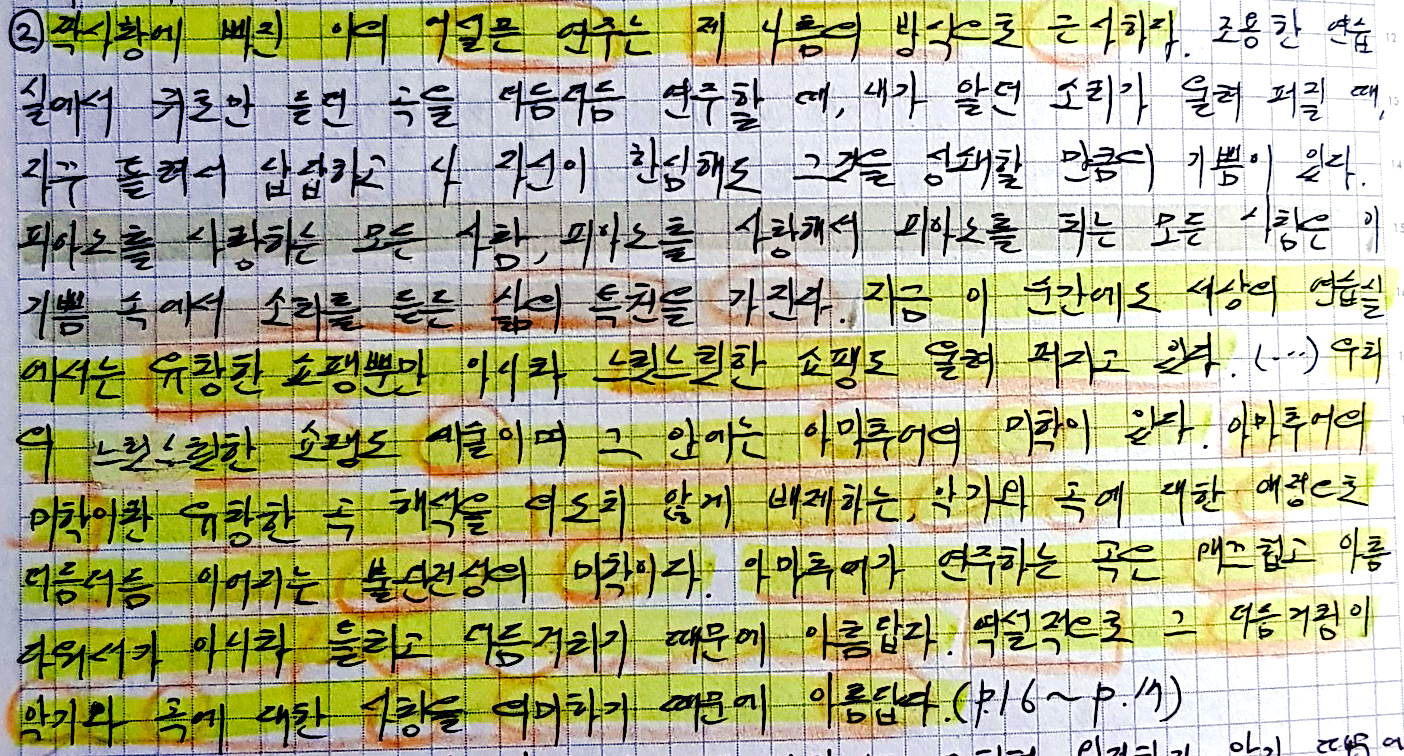 ② 짝사랑에 빠진 이의 어설픈 연주는 제 나름의 방식으로 근사하다. 조용한 연습
실에서 귀로만 듣던 곡을 더듬더듬 연주할 때, 내가 알던 소리가 울려 퍼질 때,
자꾸 틀려서 답답하고 나 자신이 한심해도 그것을 상쇄할 만큼의 기쁨이 있다.
피아노를 사랑하는 모든 사람, 피아노를 사랑해서 피아노를 치는 모든 사람은 이
기쁨 속에서 소리를 듣는 삶의 특권을 가진다. 지금 이 순간에도 세상의 연습실
에서는 유창한 쇼팽뿐만 아니라 느릿느릿한 쇼팽도 울려 퍼지고 있다. (…) 우리
의 느릿느릿한 쇼팽도 예술이며 그 안에는 아마추어의 미학이 있다. 아마추어의
미학이란 유창한 곡 해석을 의도치 않게 배제하는, 악기와 곡에 대한 애정으로
더듬더듬 이어지는 불완전성의 미학이다. 아마추어가 연주하는 곡은 매끄럽고 아름
다워서가 아니라 틀리고 더듬거리기 때문에 아름답다. 역설적으로 그 더듬거림이
악기와 곡에 대한 사랑을 의미하기 때문에 아름답다. (p.16 ~ p.17)